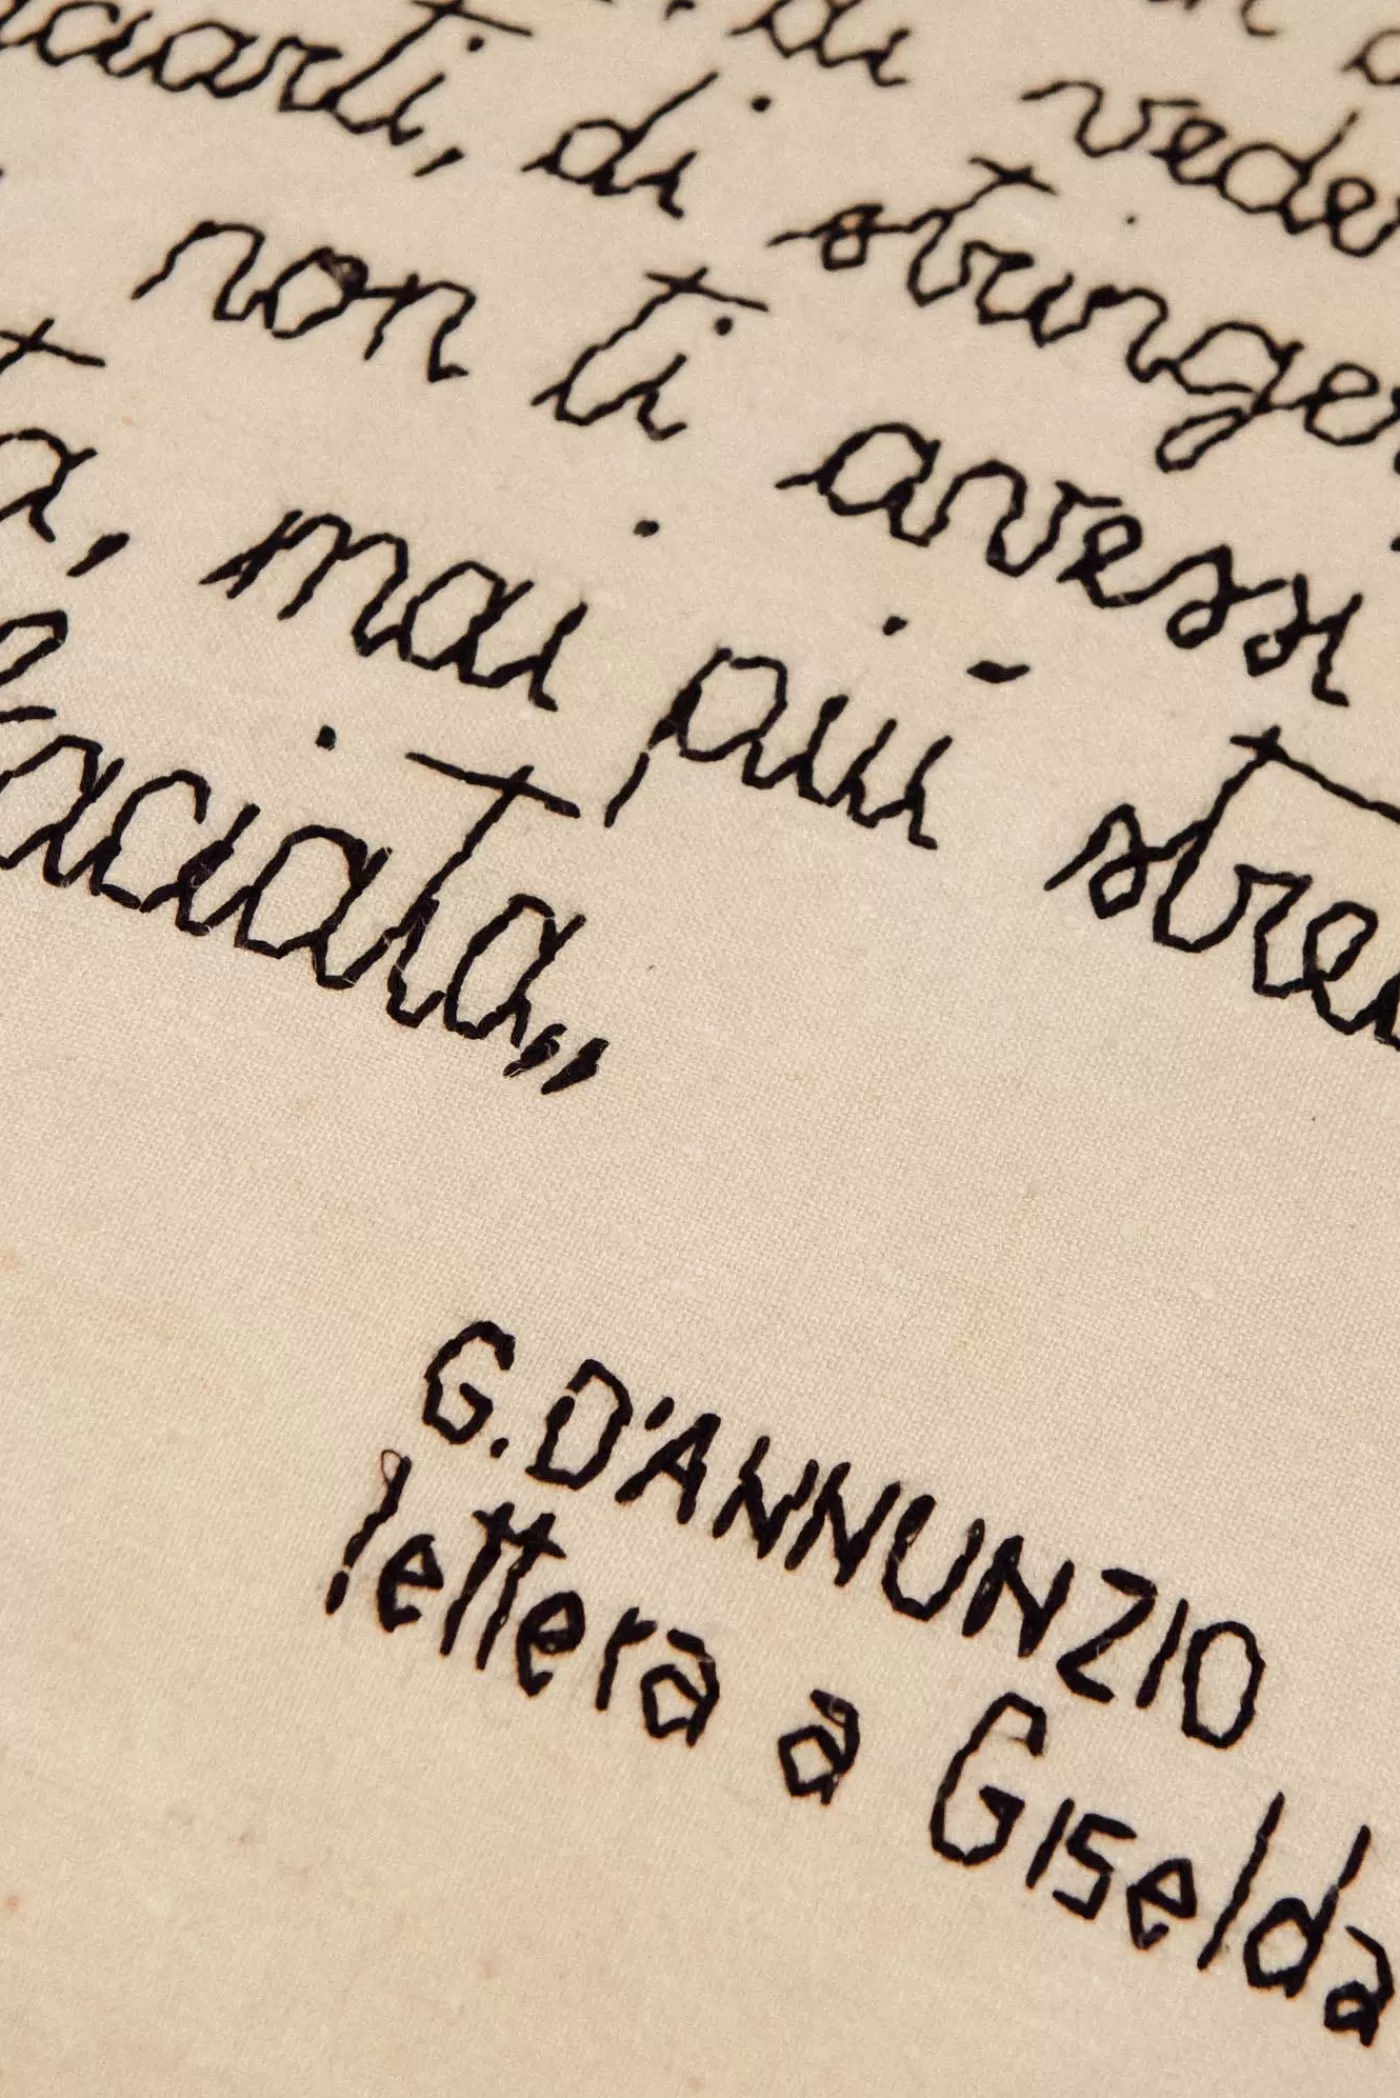 di veder
ciarti, di stringer
non ti avessi
a, mai più stre
aciata„
G. D'ANNUNZIO
lettera a Giselda